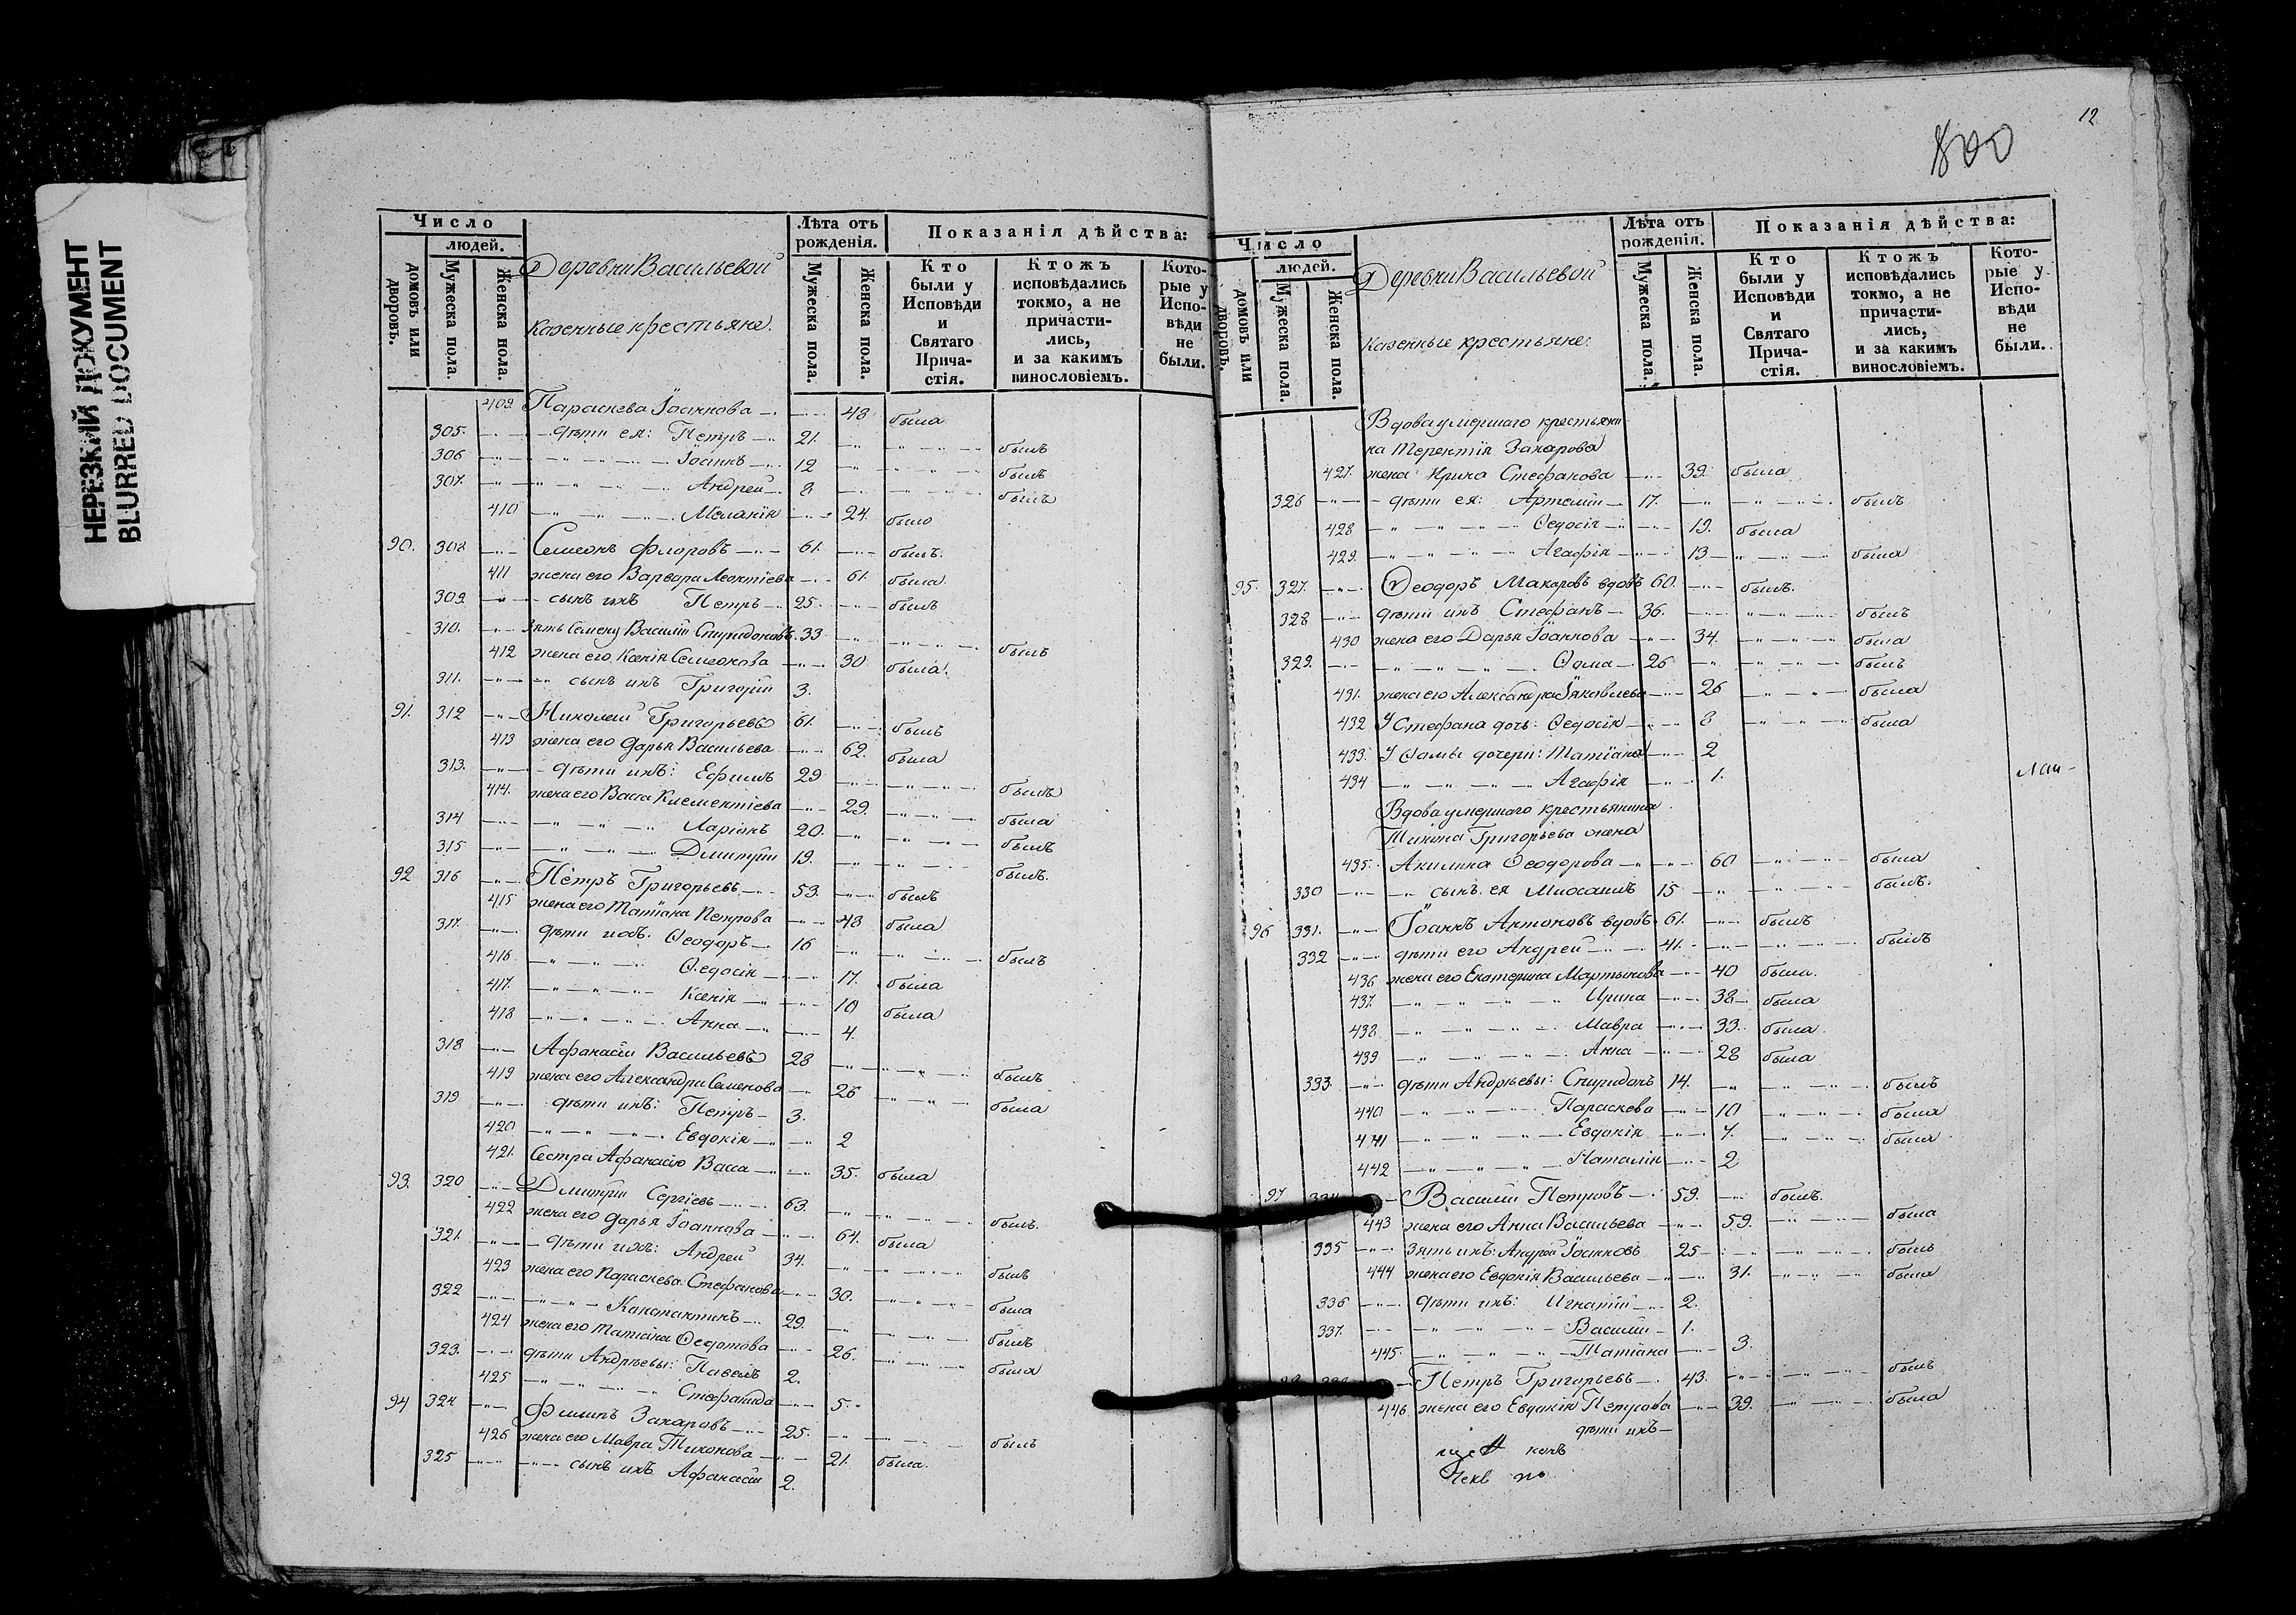 НЕРЕЗКИЙ ДОКУМЕНТ
BLURRED DOCUMENT
Число
людей.
домовъ или дворовъ.
Мужеска пола.
Женска пола.
Деревни Васильевой
казенные крестьяне.
Лѣта отъ рожденія.
Мужеска пола.
Женска пола.
Показанія дѣйства:
Кто были у Исповѣди и Святаго Прича-стія.
Ктожъ исповѣдались токмо, а не причасти-лись, и за какимъ винословіемъ.
Кото-рые у Испо-вѣди не были.
409. Параскева Іоаннова 48 была
305. дѣти ея: Петръ 21. былъ
306 Іоаннъ 12 былъ
307. Андрей 8 былъ
410 Меланія 24. была
90. 308 Симеонъ Флоровъ 61. былъ.
411 жена его Варвара Леонтіева 61. была.
309. сынъ ихъ Петръ 25. былъ
310. зять Семену Василій Спиридоновъ 33 былъ
412 жена его Ксенія Семеонова 30 была.
311. сынъ ихъ Григорій 3.
91. 312 Николай Григорьевъ 61. былъ
413 жена его Дарья Васильева 62. была
313. дѣти ихъ: Ефимъ 29 былъ
414. жена его Васса Климентіева 29. была
314 Ларіонъ 20. былъ
315 Дмитрій 19. былъ.
92 316 Петръ Григорьевъ 53. былъ
415 жена его Татіана Петрова 48 была
317. дѣти ихъ: Ѳеодоръ 16 былъ
416 Ѳедосія 17. была
417. Ксенія 10 была
418 Анна 4.
318 Афанасій Васильевъ 28 былъ
419 жена его Александра Семенова 26 была
319 дѣти ихъ: Петръ 3.
420 Евдокія 2
421. Сестра Афанасію Васса 35. была
93. 320 Дмитрій Сергіевъ 63. былъ.
422 жена его Дарья Іоаннова 64. была
321. дѣти ихъ: Андрей 34. былъ
423 жена его Параскева Стефанова 30. была
322 Константинъ 29. былъ
424 жена его Татіана Ѳедотова 26. была
323. дѣти Андрѣевы: Павелъ 2.
425 Стефанида 5.
94 324 Филипъ Захаровъ 25. былъ
426 жена его Мавра Тихонова 21. была.
325 сынъ ихъ Афанасій 2.
12
800
Число
людей.
домовъ или дворовъ.
Мужеска пола.
Женска пола.
Деревни Васильевой
казенные крестьяне.
Лѣта отъ рожденія.
Мужеска пола.
Женска пола.
Показанія дѣйства:
Кто были у Исповѣди и Святаго Прича-стія.
Ктожъ исповѣдались токмо, а не причасти-лись, и за какимъ винословіемъ.
Кото-рые у Испо-вѣди не были.
Вдова умершаго крестьяни
на Терентія Захарова
427. жена Ирина Стефанова 39. была
326 дѣти ея: Артемій 17. былъ
428 Ѳедосія 19. была
429. Агафія 13 была
95. 327. Ѳеодоръ Макаровъ вдовъ 60. былъ.
328 дѣти ихъ Стефанъ 36. былъ
430 жена его Дарья Іоаннова 34. была
329. Ѳома 26 былъ
431. жена его Александра Іяковлева 26 была
432 У Стефана дочь: Ѳедосія 8 была
433. У Ѳомы дочери: Татіана 2
434 Агафія 1.
Вдова умершаго крестьянина
Тихона Григорьева жена
435. Акилина Ѳеодорова 60 была
330 сынъ ея Михаилъ 15 былъ.
96 331. Іоаннъ Антоновъ вдовъ 61. былъ
332 дѣти его Андрей 41. былъ
436 жена его Екатерина Мартынова 40 была.
437. Ирина 38 была
438 Мавра 33. была
439 Анна 28 была
333. дѣти Андрѣевы: Спиридонъ 14. былъ
440 Параскева 10 была
441 Евдокія 7. была
442 Наталія 2
97 334 Василій Петровъ 59. былъ.
443 жена его Анна Васильева 59. была
335 зять ихъ: Андрей Іоанновъ 25 былъ
444 жена его Евдокія Васильева 31. была
336 дѣти ихъ: Игнатій 2.
337. Василій 1.
445. Татіана 3.
Петръ Григорьевъ 43. былъ
446 жена его Евдокія Петрова 39. была
дѣти ихъ